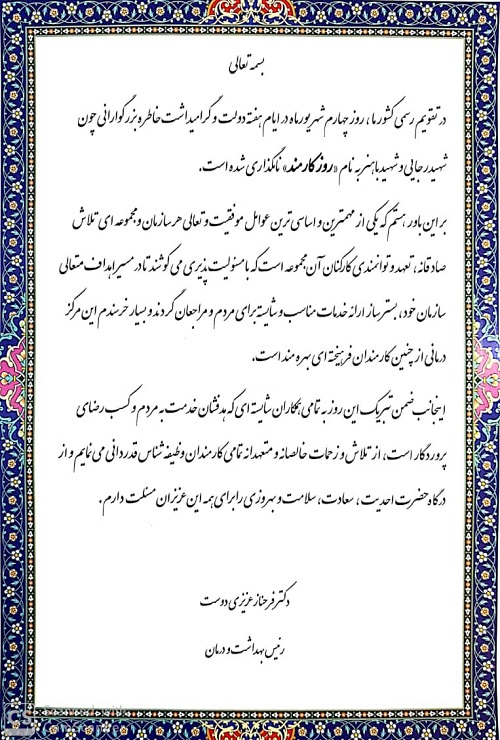 بسمه تعالی
در تقویم رسمی کشور ما، روز چهارم شهریور ماه در ایام هفته دولت و گرامیداشت خاطره بزرگوارانی چون
شهید رجایی و شهید باهنر به نام «روز کارمند» نامگذاری شده است.
بر این باور هستم که یکی از مهمترین و اساسی ترین عوامل موفقیت و تعالی هر سازمان و مجموعه ای تلاش
صادقانه، تعهد و توانمندی کارکنان آن مجموعه است که با مسئولیت پذیری می کوشند تا در مسیر اهداف متعالی
سازمان خود، بسترساز ارائه خدمات مناسب و شایسته برای مردم و مراجعان گردند و بسیار خرسندم این مرکز
درمانی از چنین کارمندان فرهیخته ای بهره مند است.
اینجانب ضمن تبریک این روز به تمامی همکاران شایسته ای که هدفشان خدمت به مردم و کسب رضای
پروردگار است، از تلاش و زحمات خالصانه و متعهدانه تمامی کارمندان وظیفه شناس قدردانی می نمایم و از
درگاه حضرت احدیت، سعادت، سلامت و بهروزی را برای همه این عزیزان مسئلت دارم.
دکتر فرحناز عزیزی دوست
رئیس بهداشت و درمان
CS